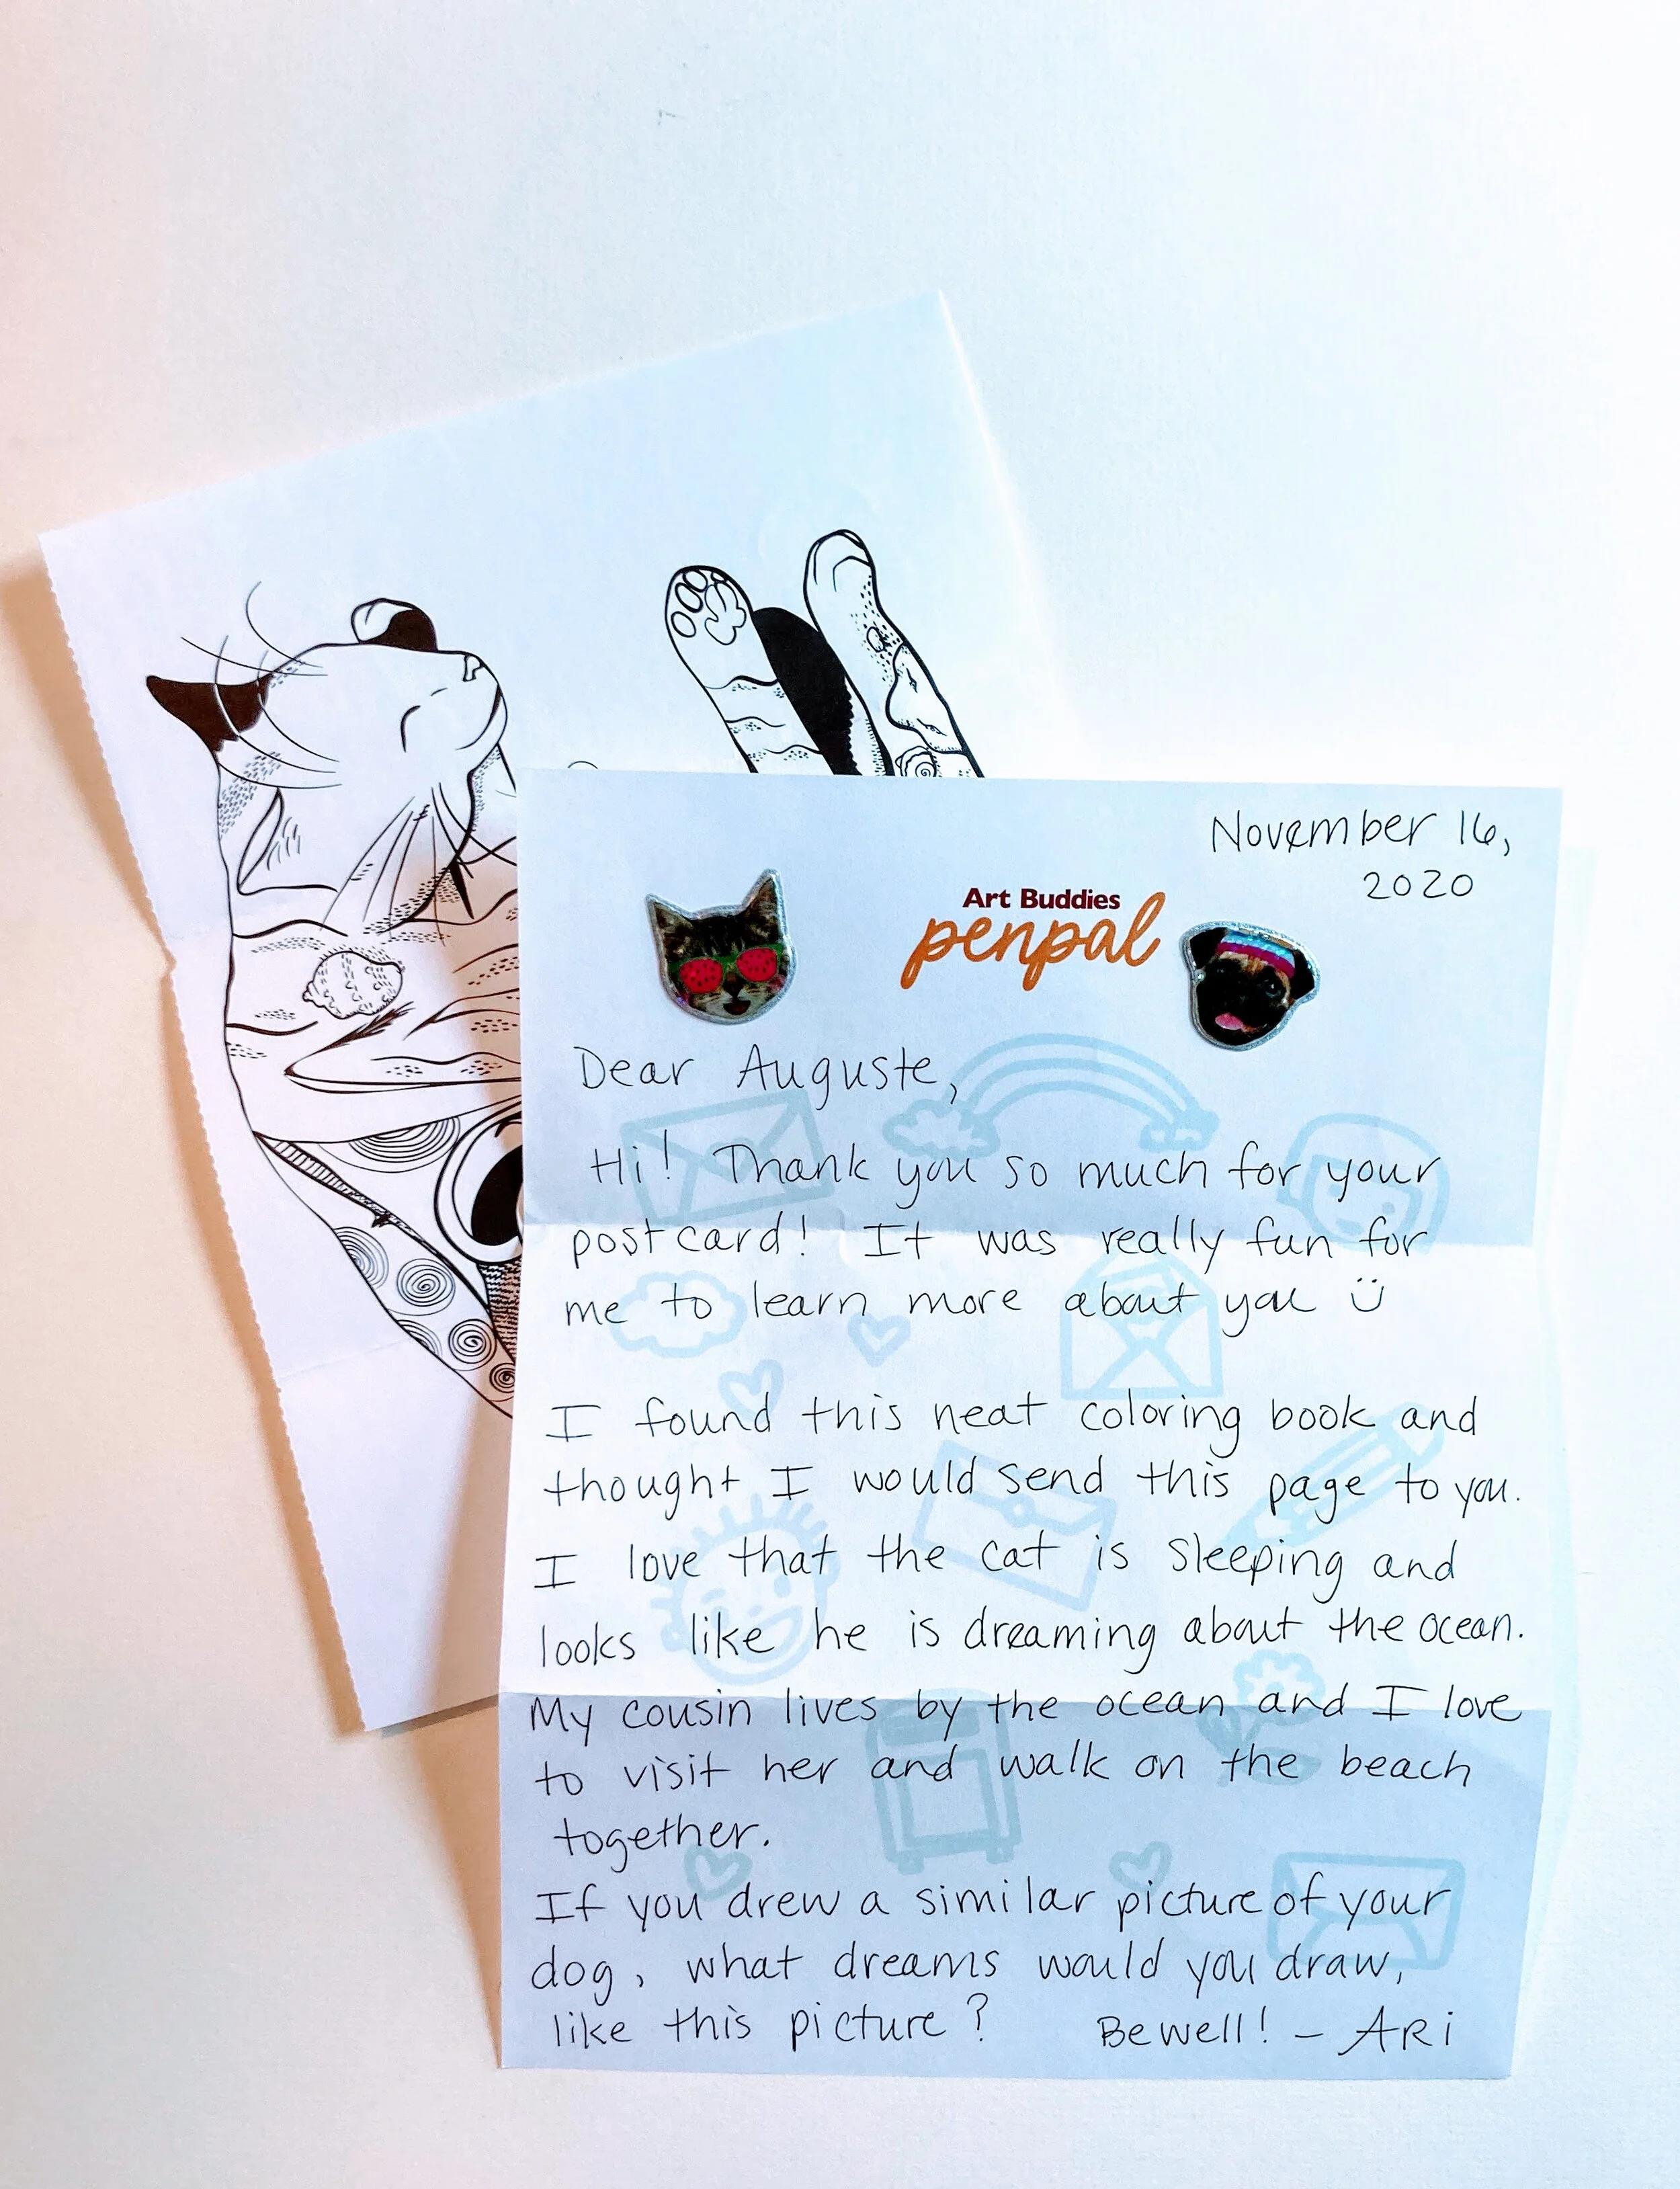 November 16,
2020
Art Buddies
penpal
Dear Auguste,
Hi! Thank you so much for your
postcard! It was really fun for
me to learn more about you ü
I found this neat coloring book and
thought I would send this page to you.
I love that the cat is sleeping and
looks like he is dreaming about the ocean.
My cousin lives by the ocean and I love
to visit her and walk on the beach
together.
If you drew a similar picture of your
dog, what dreams would you draw,
like this picture? Be well! - ARi